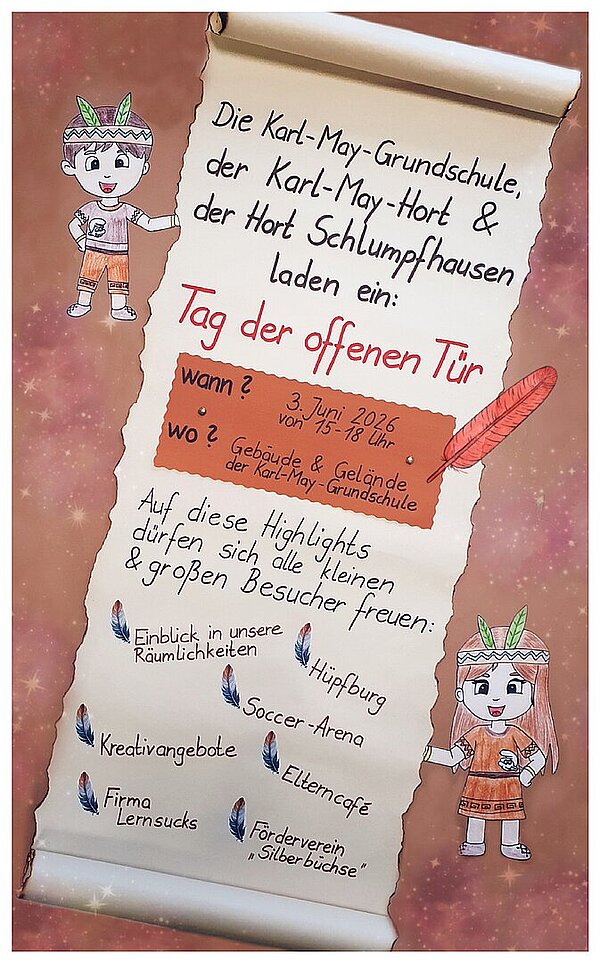 Die Karl-May-Grundschule,
der Karl-May-Hort &
der Hort Schlumpfhausen
laden ein:
Tag der offenen Tür
wann? 3. Juni 2026
von 15-18 Uhr
wo? Gebäude & Gelände
der Karl-May-Grundschule
Auf diese Highlights
dürfen sich alle kleinen
& großen Besucher freuen:
Einblick in unsere
Räumlichkeiten
Hüpfburg
Soccer-Arena
Kreativangebote
Elterncafé
Firma
Lernsucks
Förderverein
„Silberbüchse“